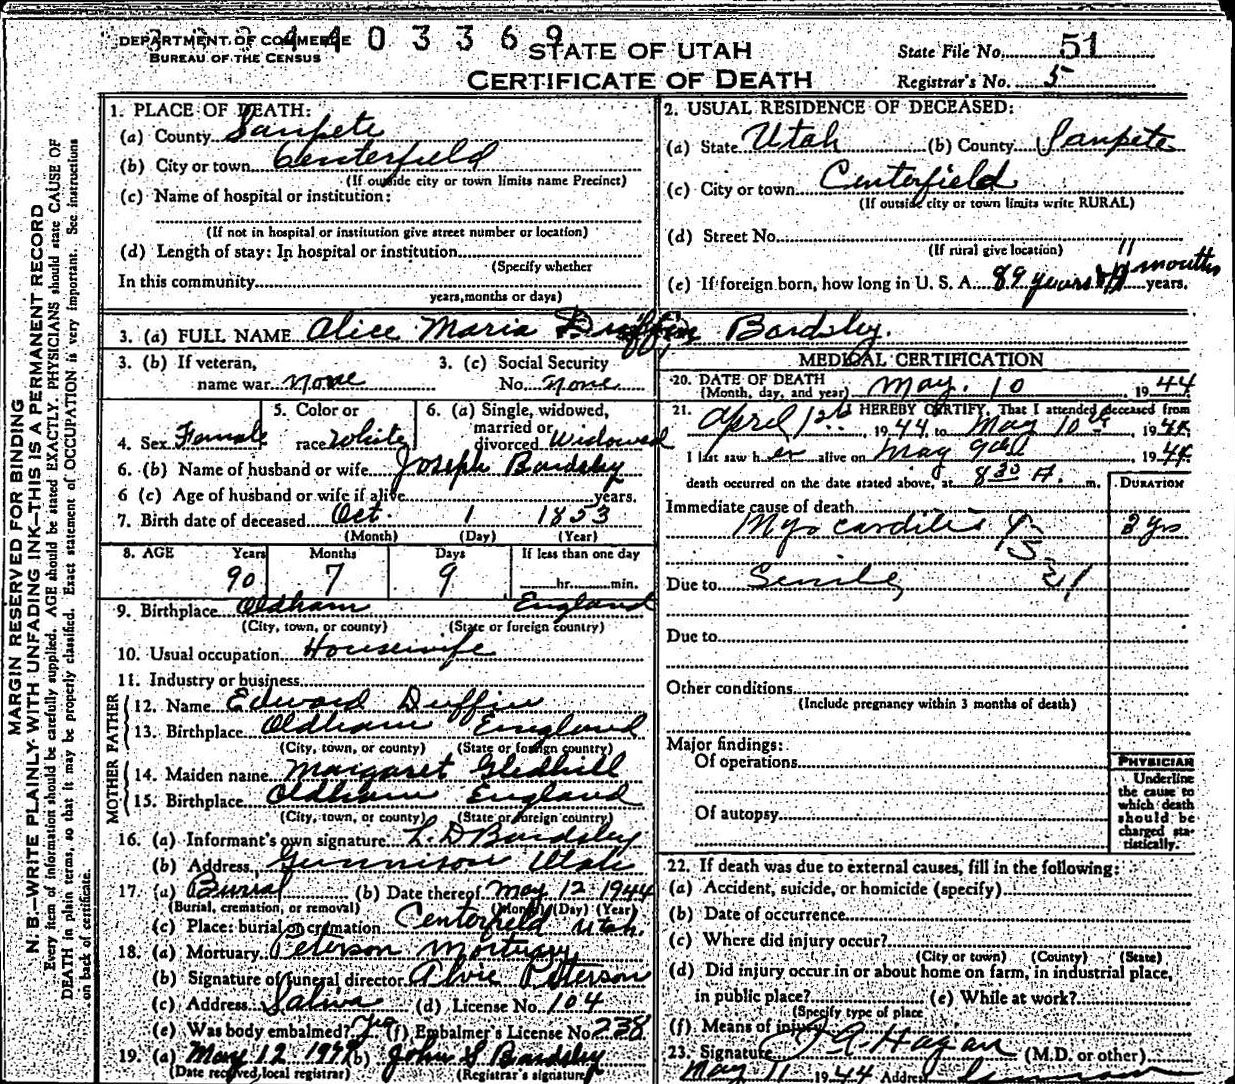 DEPARTMENT OF COMMERCE
BUREAU OF THE CENSUS
4 4 0 3 3 6 9
STATE OF UTAH
CERTIFICATE OF DEATH
State File No. 51
Registrar's No. 5
MARGIN RESERVED FOR BINDING
N. B.—WRITE PLAINLY WITH UNFADING INK—THIS IS A PERMANENT RECORD
Every item of information should be carefully supplied. AGE should be stated EXACTLY. PHYSICIANS should state CAUSE OF
DEATH in plain terms, so that it may be properly classified. Exact statement of OCCUPATION is very important. See instructions
on back of certificate.
1. PLACE OF DEATH:
(a) County Sanpete
(b) City or town Centerfield
(If outside city or town limits name Precinct)
(c) Name of hospital or institution:
(If not in hospital or institution give street number or location)
(d) Length of stay: In hospital or institution
(Specify whether
In this community
years, months or days)
2. USUAL RESIDENCE OF DECEASED:
(a) State Utah (b) County Sanpete
(c) City or town Centerfield
(If outside city or town limits write RURAL)
(d) Street No.
(If rural give location)
(e) If foreign born, how long in U. S. A. 89 years 11 months years.
3. (a) FULL NAME Alice Maria Duffin Bardsley.
3. (b) If veteran,
name war none
3. (c) Social Security
No. none
4. Sex Female
5. Color or
race White
6. (a) Single, widowed,
married or
divorced Widowed
6. (b) Name of husband or wife Joseph Bardsley
6 (c) Age of husband or wife if alive years.
7. Birth date of deceased Oct. 1 1853
(Month) (Day) (Year)
8. AGE Years Months Days If less than one day
90 7 9 hr. min.
9. Birthplace Oldham England
(City, town, or county) (State or foreign country)
10. Usual occupation Housewife
11. Industry or business
FATHER
12. Name Edward Duffin
13. Birthplace Oldham England
(City, town, or county) (State or foreign country)
MOTHER
14. Maiden name Margaret Gledhill
15. Birthplace Oldham England
(City, town, or county) (State or foreign country)
16. (a) Informant's own signature L. D Bardsley
(b) Address Gunnison Utah
17. (a) Burial (b) Date thereof May 12 1944
(Burial, cremation, or removal) (Month) (Day) (Year)
(c) Place: burial or cremation Centerfield Utah.
18. (a) Mortuary Peterson Mortuary
(b) Signature of funeral director Alvie Peterson
(c) Address Salina (d) License No. 104
(e) Was body embalmed? Yes (f) Embalmer's License No. 238
19. (a) May 12 1944 (b) John S Bardsley
(Date received local registrar) (Registrar's signature)
MEDICAL CERTIFICATION
20. DATE OF DEATH
(Month, day, and year) May. 10 1944
21. I HEREBY CERTIFY, That I attended deceased from
April 1944 to May 10 1944
I last saw her alive on May 1944
death occurred on the date stated above, at 8 30 A. m.
DURATION
Immediate cause of death
Myocarditis yrs
Due to
Due to
Other conditions
(Include pregnancy within 3 months of death)
Major findings:
Of operations
Of autopsy
PHYSICIAN
Underline
the cause to
which death
should be
charged sta-
tistically.
22. If death was due to external causes, fill in the following:
(a) Accident, suicide, or homicide (specify)
(b) Date of occurrence
(c) Where did injury occur?
(City or town) (County) (State)
(d) Did injury occur in or about home on farm, in industrial place,
in public place? (e) While at work?
(Specify type of place
(f) Means of injury
23. Signature Hagan (M.D. or other)
May 11 1944 Address